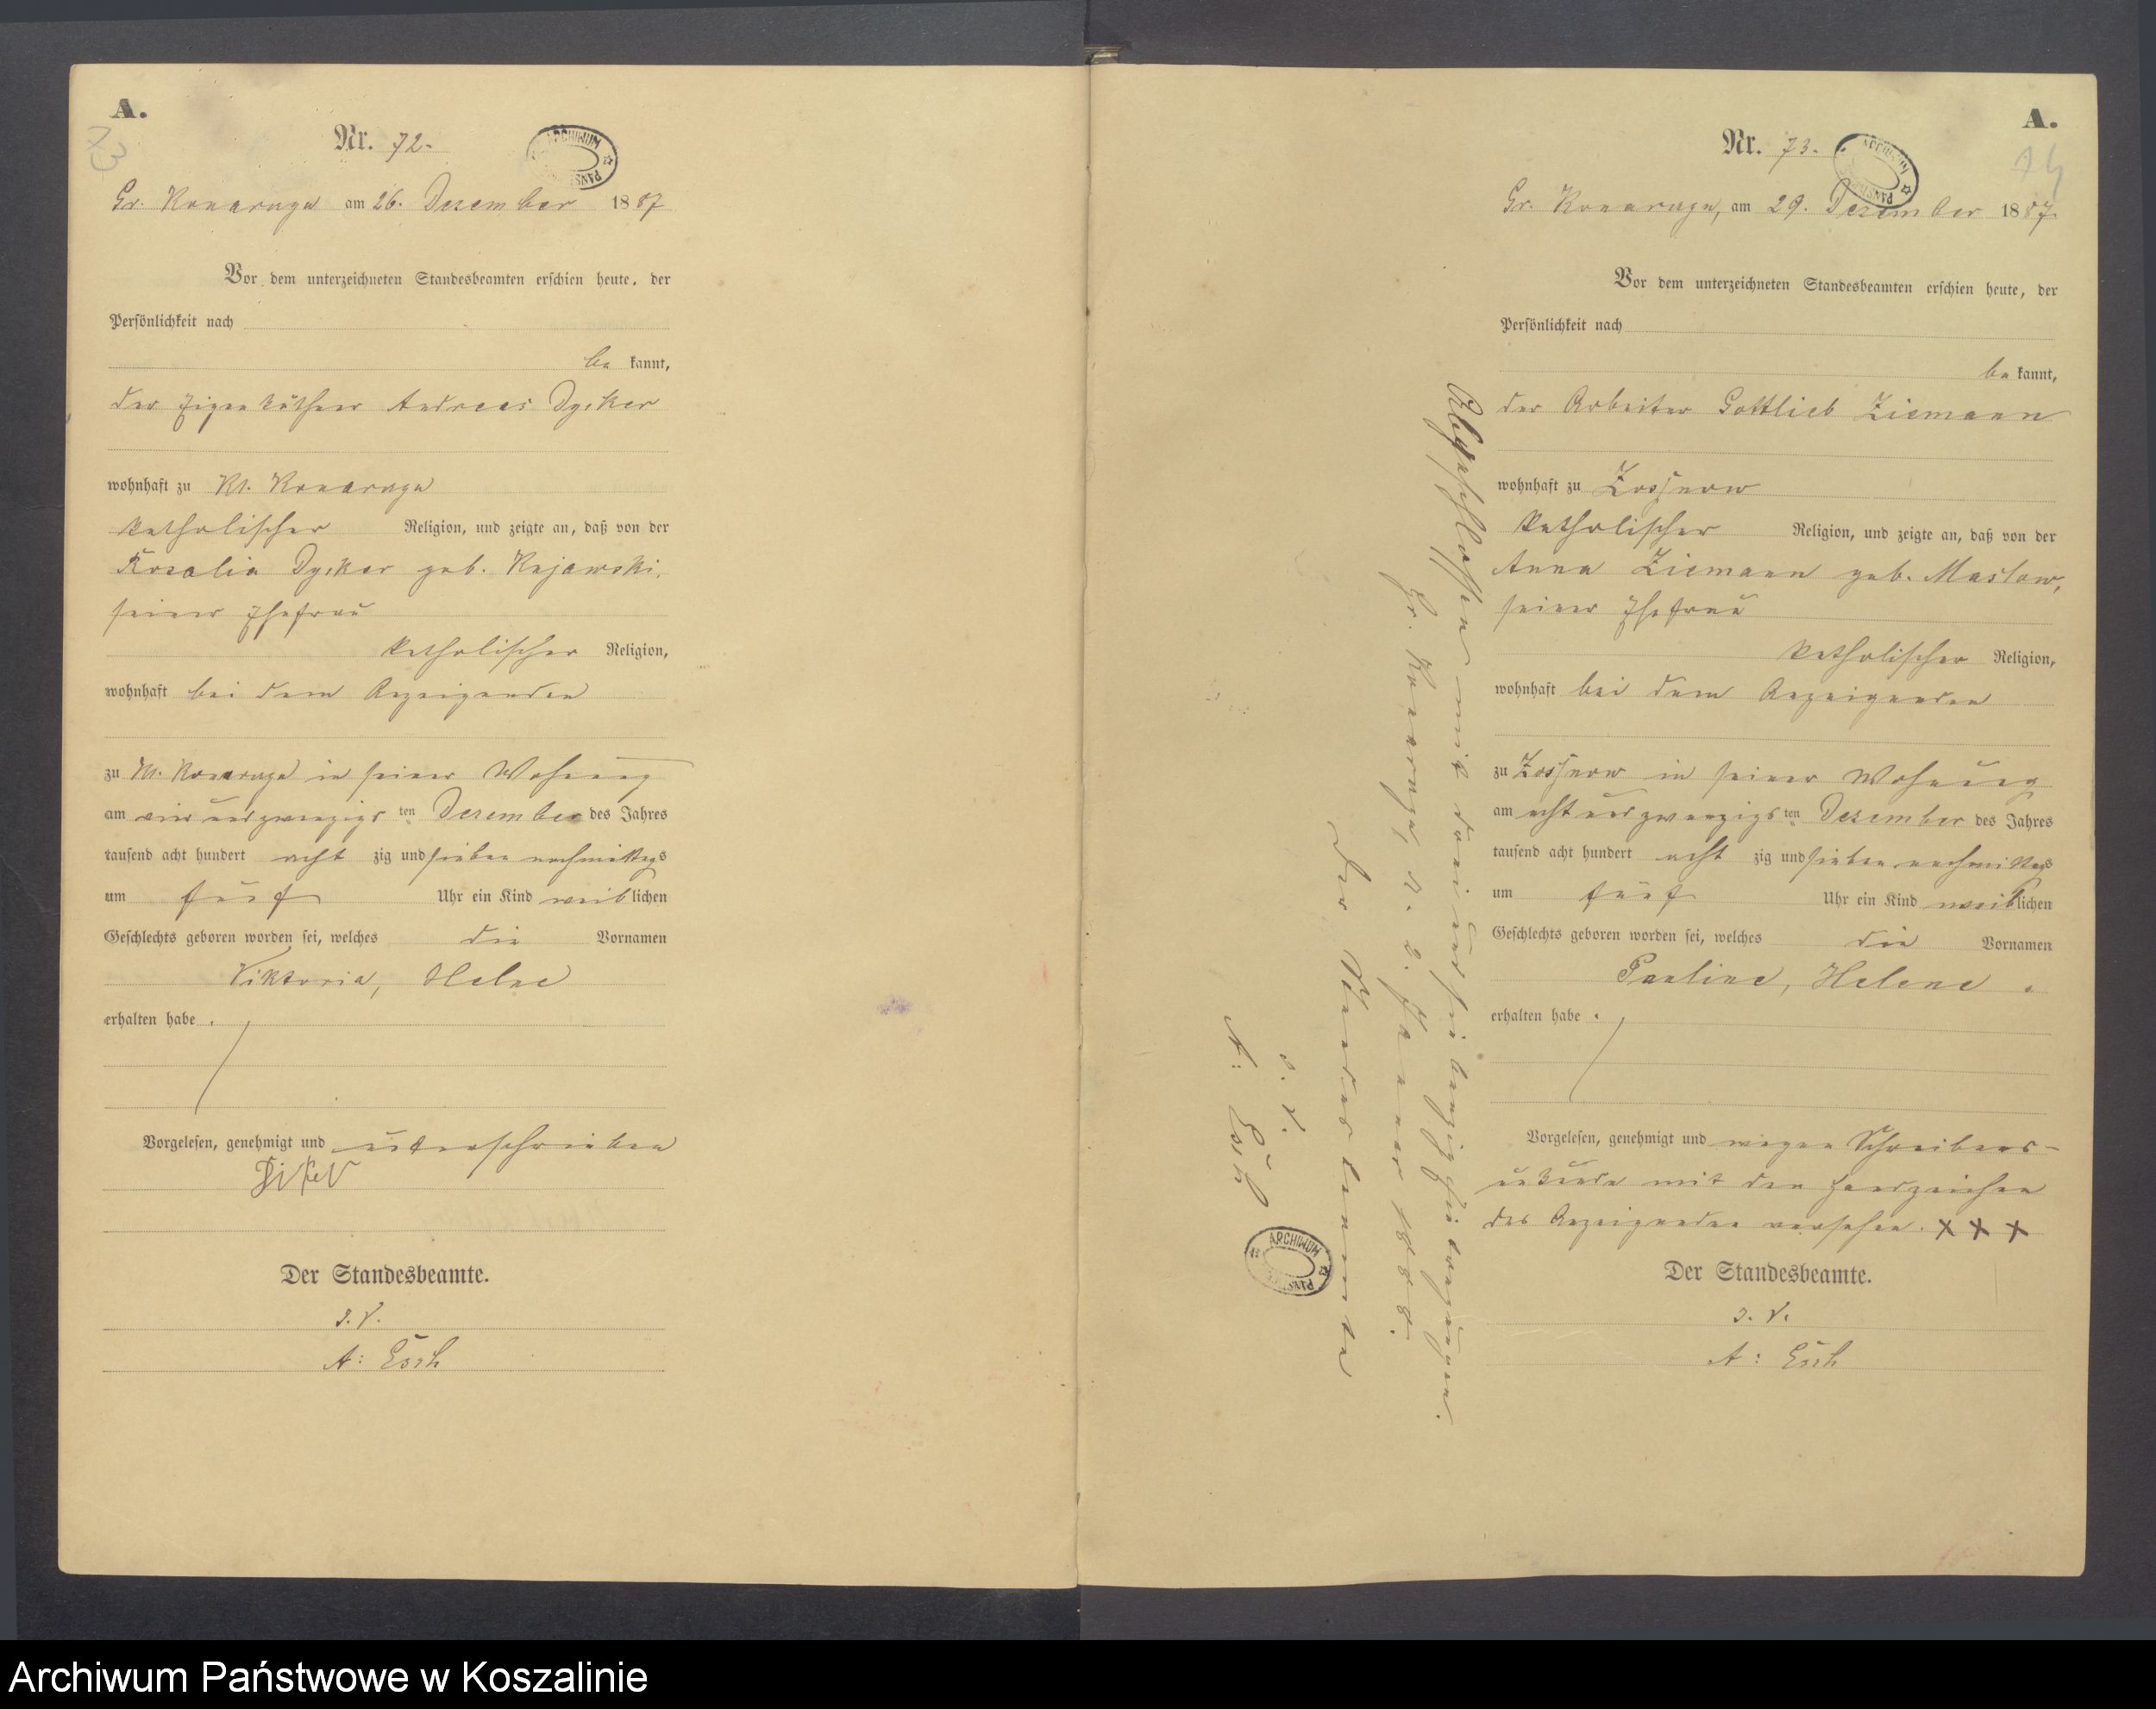 A.
73
Nr. 72.
ARCHIWUM PAŃST
Gr. Konarzyn am 26. Dezember 1887
Vor dem unterzeichneten Standesbeamten erschien heute, der
Persönlichkeit nach
be kannt,
der Eigenkäthner Andreas Dycker
wohnhaft zu Kl. Konarzyn
katholischer Religion, und zeigte an, daß von der
Rosalia Dycker geb. Kujawski,
seiner Ehefrau
katholischer Religion,
wohnhaft bei dem Anzeigenden
zu Kl. Konarzyn in seiner Wohnung
am ein und zwanzigs ten Dezember des Jahres
tausend acht hundert acht zig und sieben nachmittags
um fünf Uhr ein Kind weib lichen
Geschlechts geboren worden sei, welches die Vornamen
Viktoria, Helne
erhalten habe.
Vorgelesen, genehmigt und unterschrieben
Der Standesbeamte.
I. V.
A: Esch
A.
74
Nr. 73.
ARCHIWUM PAŃST
Gr. Konarzyn, am 29. Dezember 1887.
Vor dem unterzeichneten Standesbeamten erschien heute, der
Persönlichkeit nach
be kannt,
der Arbeiter Gottlieb Ziemann
wohnhaft zu Zossnow
katholischer Religion, und zeigte an, daß von der
Anna Ziemann geb. Maslow,
seiner Ehefrau
katholischer Religion,
wohnhaft bei dem Anzeigenden
zu Zossnow in seiner Wohnung
am acht und zwanzigs ten Dezember des Jahres
tausend acht hundert acht zig und sieben nachmittags
um fünf Uhr ein Kind weib lichen
Geschlechts geboren worden sei, welches die Vornamen
Pauline, Helene.
erhalten habe.
Vorgelesen, genehmigt und wegen Schreibens-
unkunde mit den Handzeichen
des Anzeigenden versehen. X X X
Der Standesbeamte.
I. V.
A: Esch
Abgeschlossen mit drei und siebenzig Eintragungen.
Gr. Konarzyn, d. 2. Januar 1888.
Der Standesbeamte
I. V.
A: Esch
ARCHIWUM PAŃST
Archiwum Państwowe w Koszalinie